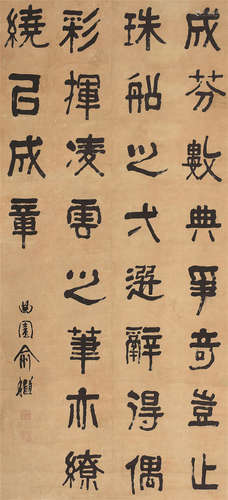 成芬數典爭奇豈止
珠船之弋選辭得偶
彩揮凌雲之筆亦繚
繞以成章
曲園俞樾